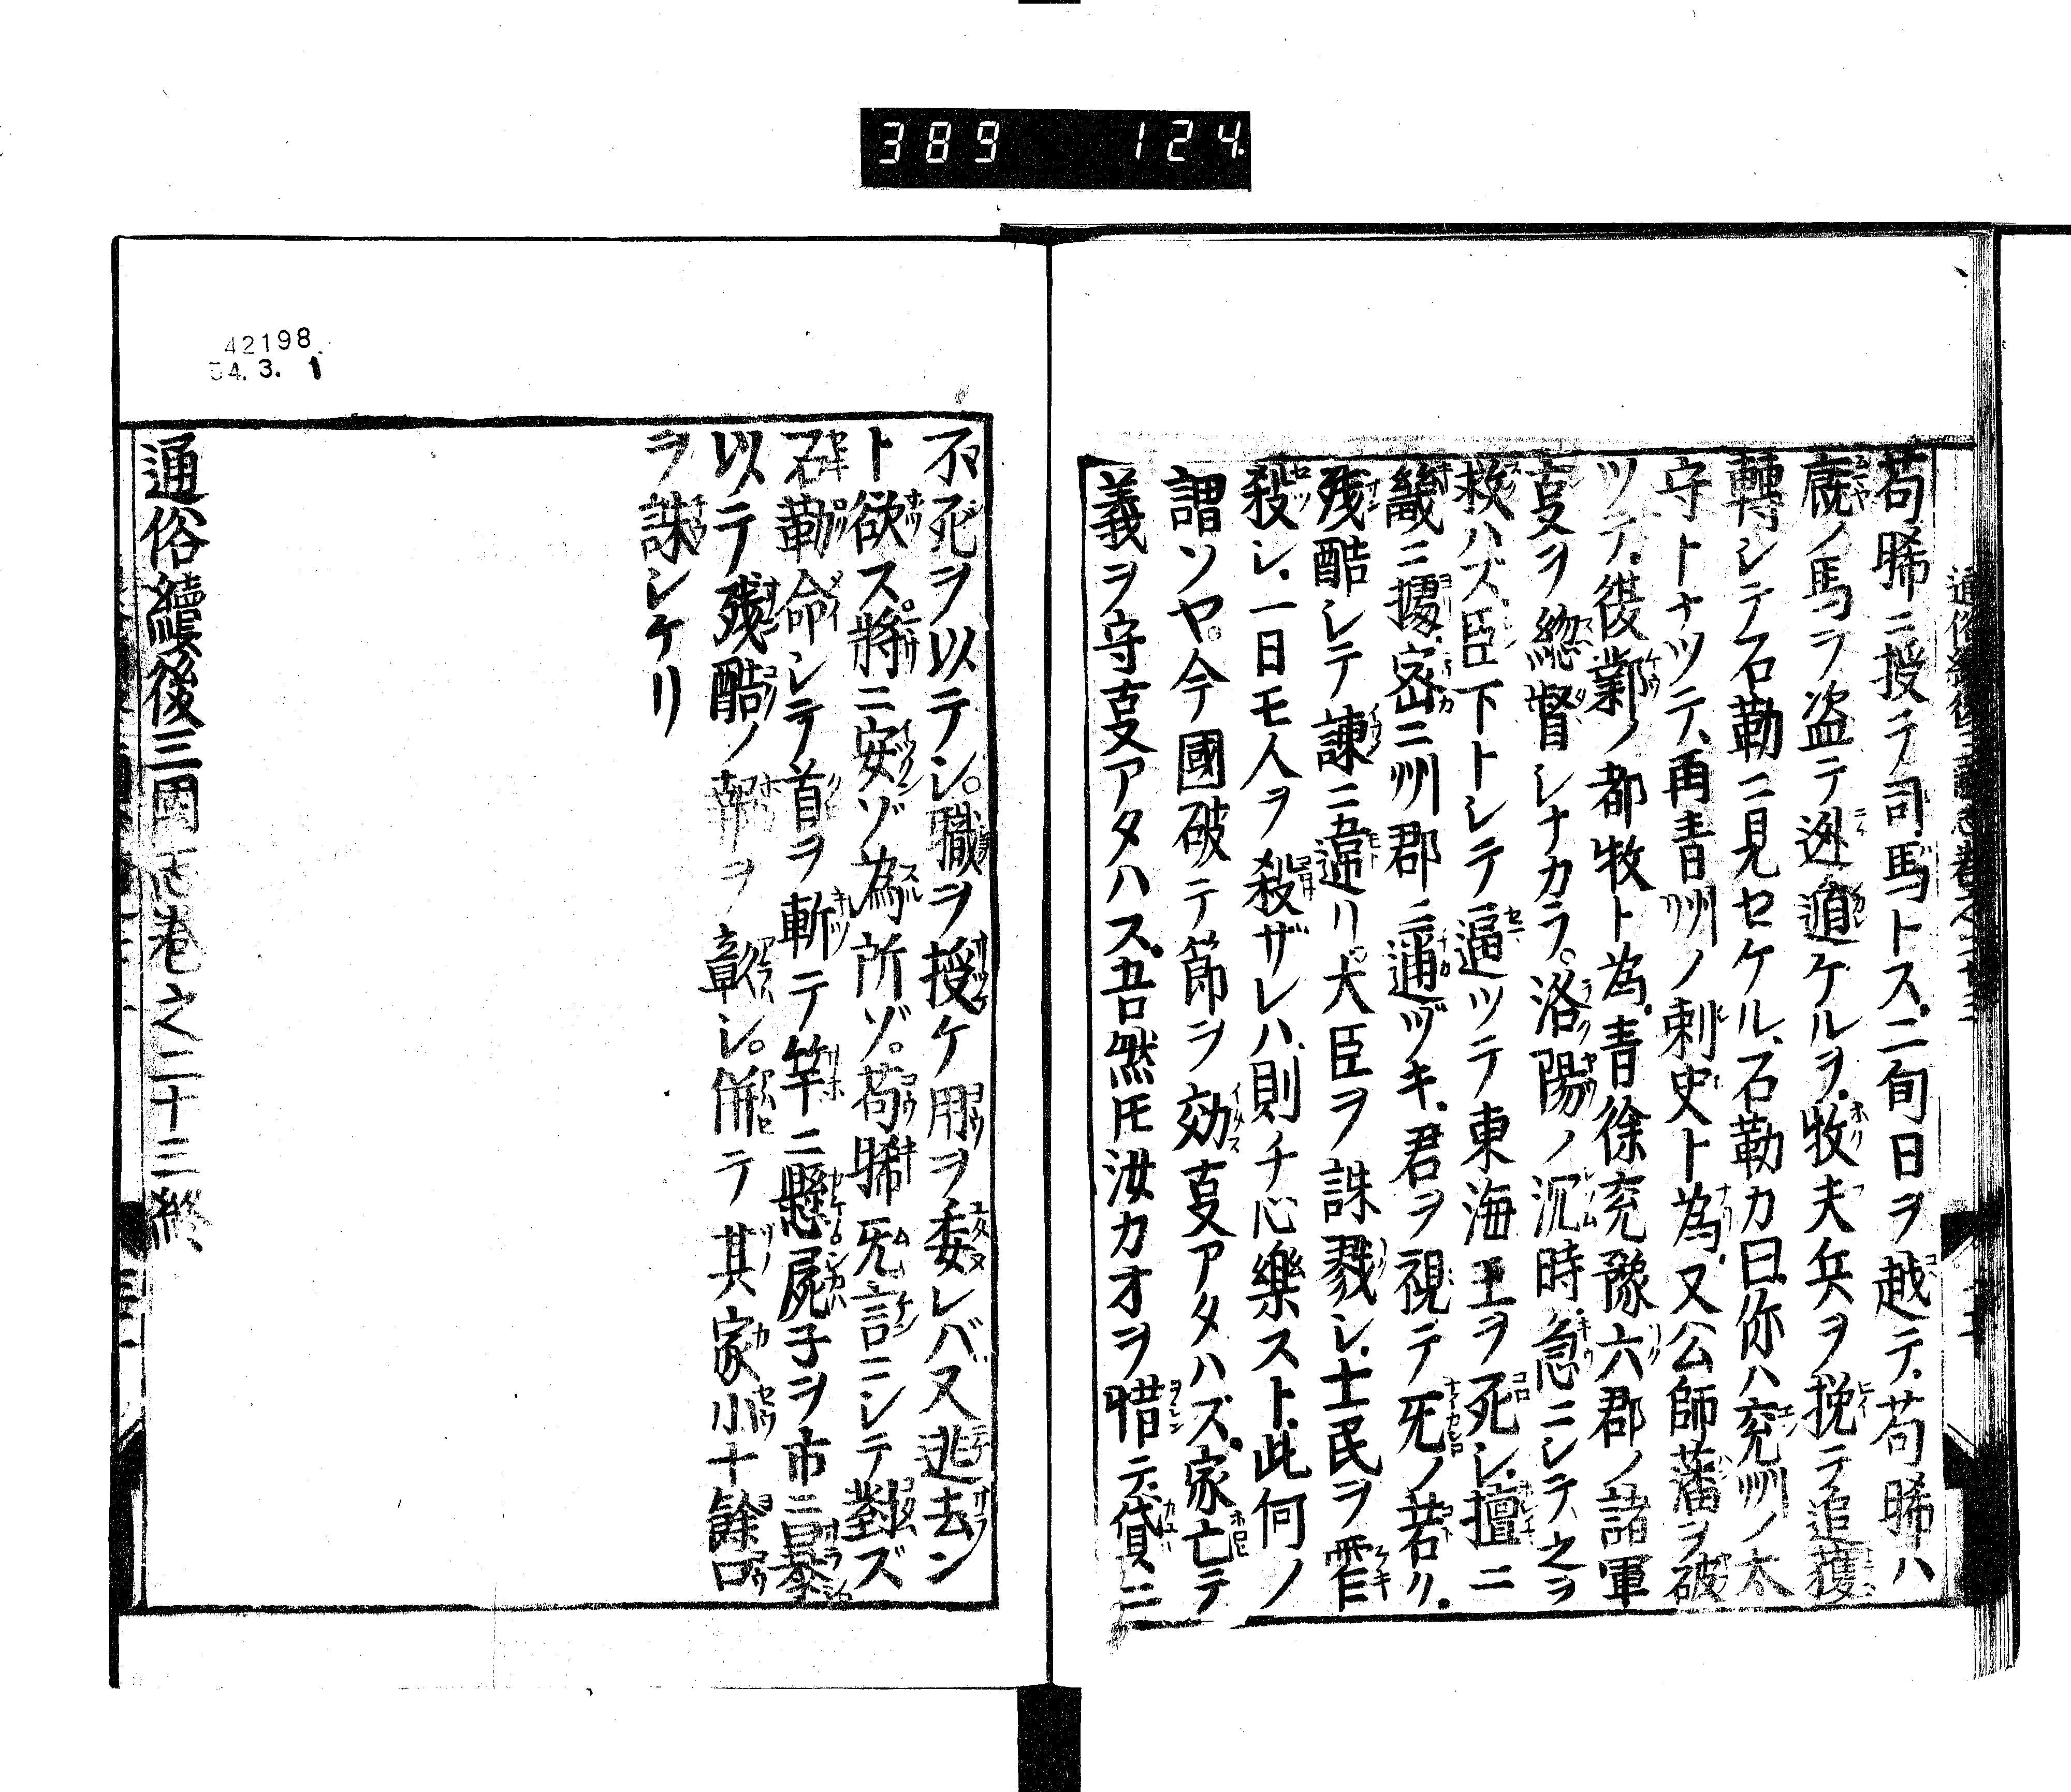 389 124
苟晞ニ授テ司馬トス。二旬日ヲ越テ。苟晞ハ
廐ノ馬ヲ盗テ迯遁ケルヲ。牧夫兵ヲ挽テ追獲
轉シテ石勒ニ見セケル、石勒カ曰。你ハ兗州ノ太
守トナツテ、再青州ノ刺史ト為。又公師藩ヲ破
ツテ。後鄴ノ都牧ト為。青徐兗豫六郡ノ諸軍
叓ヲ総督シナカラ。洛陽ノ沉時急ニシテ之ヲ
救ハズ臣下トシテ逼ツテ東海王ヲ死シ。擅ニ
畿ニ據。密ニ州郡ニ逋ヅキ。君ヲ視テ旡ノ若リ。
残酷シテ諌ニ違リ。大臣ヲ誅戮シ。士民ヲ虐
殺シ。一日モ人ヲ殺ザレハ則チ心樂スト。此何ノ
謂ソヤ。今國破テ節ヲ効叓アタハズ。家亡テ
義ヲ守叓アタハス。吾然𪜈汝カオヲ惜テ。貸ニ
不死ヲ以テシ。職ヲ授ケ用ヲ委レバ又逃去ン
ト欲ス。将ニ安ゾ為所ゾ。苟晞旡言ニシテ對ズ
石勒命シテ首ヲ斬テ竿ニ懸屍子ヲ市ニ暴
以テ残酷ノ報ヲ彰シ。併テ其家小十餘口
ヲ誅シケリ
通俗續後三國志巻之二十三終
42198
54.3.1